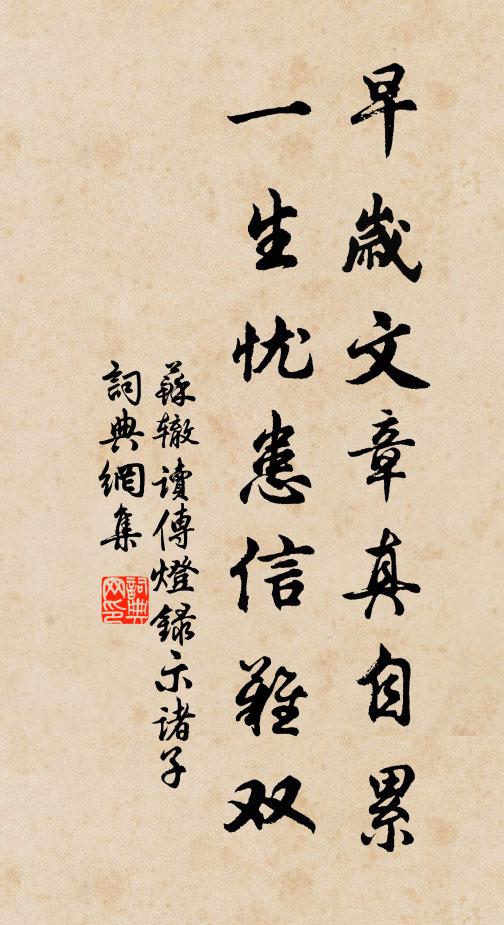 早歲文章真自累
一生忧患信難双
蘇辙讀傳燈録示諸子
詞典網集
詞典网印